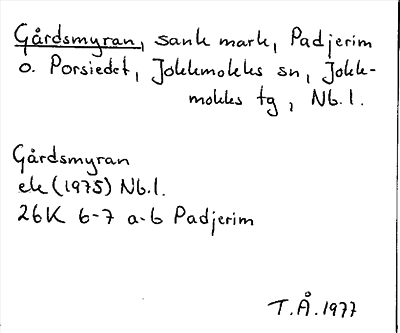 Gårdsmyran, sank mark, Padjerim
o. Porsiedet, Jokkmokks sn, Jokk-
mokks tg, Nb.l.
Gårdsmyran
ek (1975) Nb.l.
26K 6-7 a-b Padjerim
T.Å. 1977